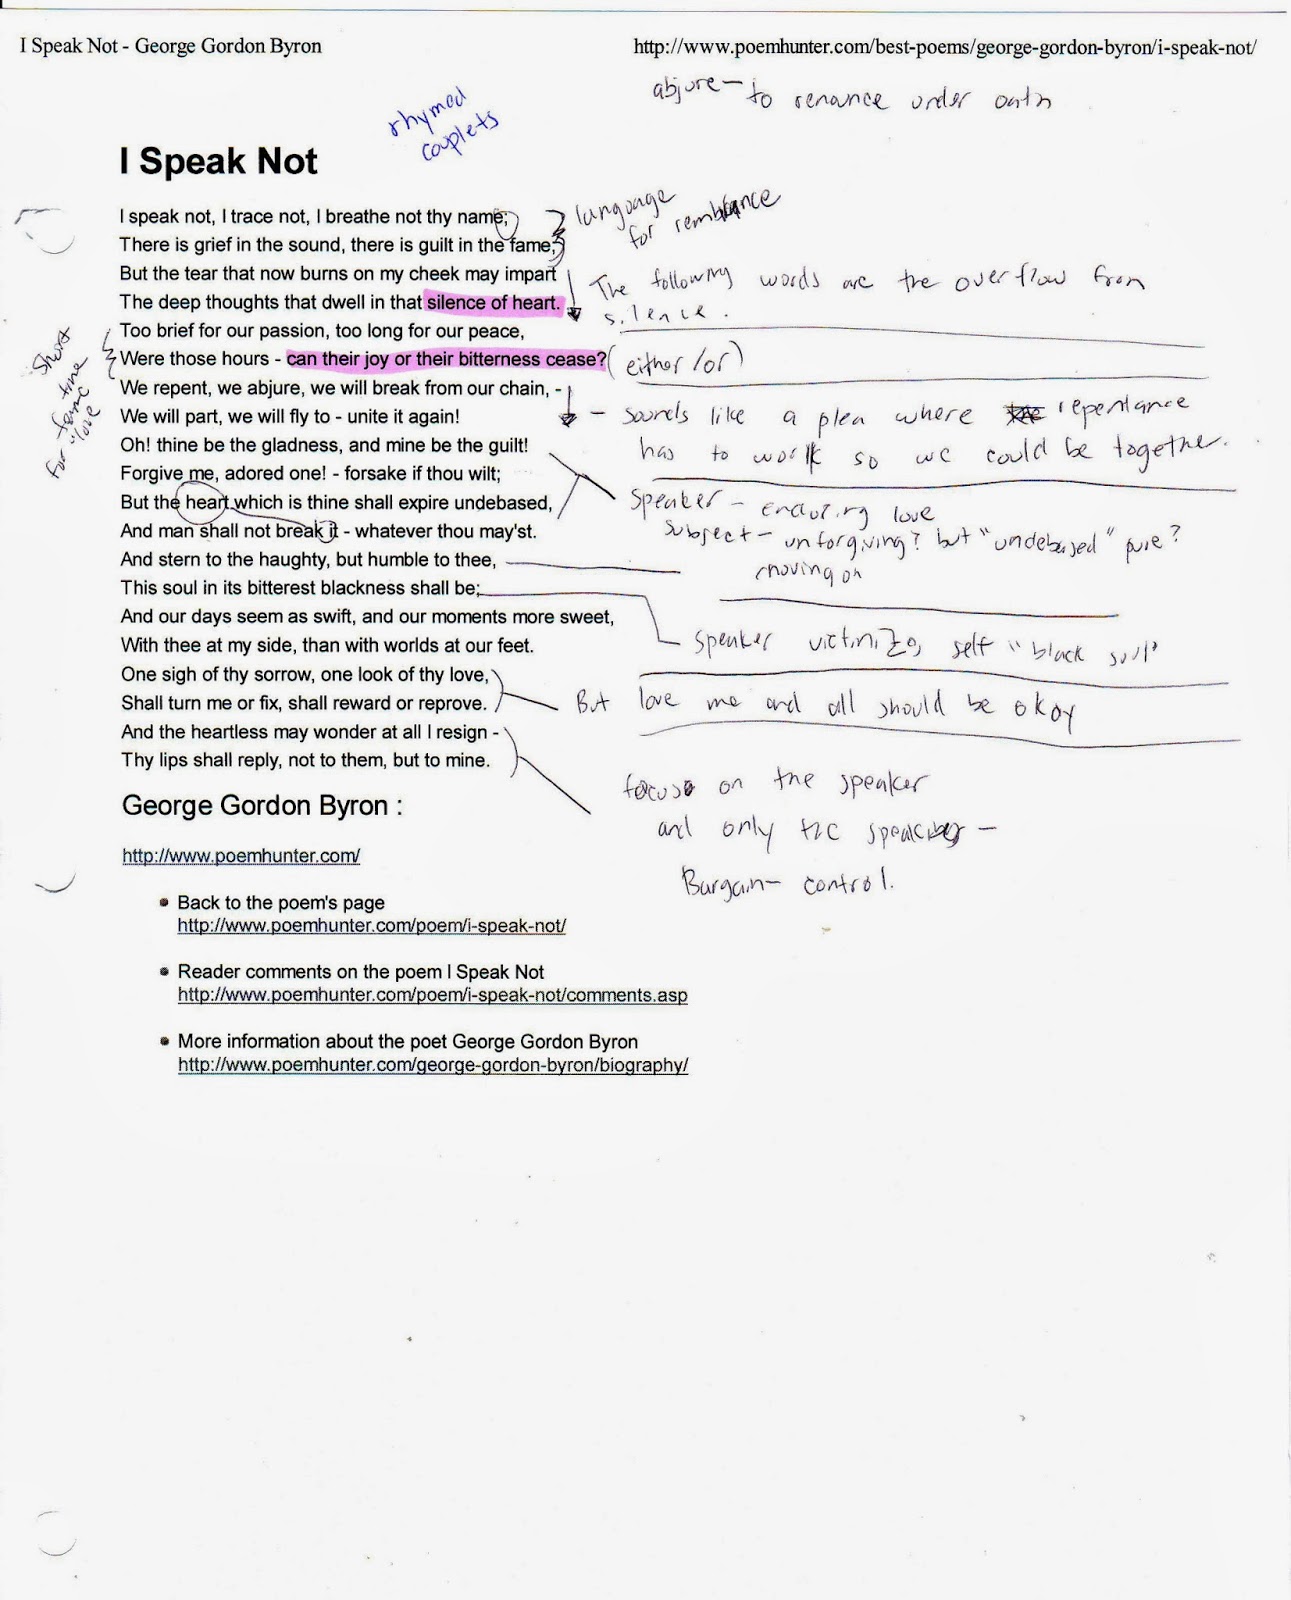 I Speak Not - George Gordon Byron
http://www.poemhunter.com/best-poems/george-gordon-byron/i-speak-not/
abjure - to renounce under oath
rhymed
couplets
I Speak Not
I speak not, I trace not, I breathe not thy name;
There is grief in the sound, there is guilt in the fame;
language
for
But the tear that now burns on my cheek may impart
The deep thoughts that dwell in that silence of heart.
The following words are the overflow from
silence.
Too brief for our passion, too long for our peace,
Were those hours - can their joy or their bitterness cease?
(either/or)
short
time
for
love
We repent, we abjure, we will break from our chain, -
We will part, we will fly to - unite it again!
- sounds like a plea where repentance
has to work so we could be together.
Oh! thine be the gladness, and mine be the guilt!
Forgive me, adored one! - forsake if thou wilt;
But the heart which is thine shall expire undebased,
And man shall not break it - whatever thou may'st.
speaker - enduring love
subject - unforgiving? but "undebased" pure?
moving on
And stern to the haughty, but humble to thee,
This soul in its bitterest blackness shall be;
speaker victimizes self "black soul"
And our days seem as swift, and our moments more sweet,
With thee at my side, than with worlds at our feet.
One sigh of thy sorrow, one look of thy love,
Shall turn me or fix, shall reward or reprove.
But love me and all should be okay
And the heartless may wonder at all I resign -
Thy lips shall reply, not to them, but to mine.
focus on the speaker
and only the speaker -
Bargain - control.
George Gordon Byron :
http://www.poemhunter.com/
Back to the poem's page
http://www.poemhunter.com/poem/i-speak-not/
Reader comments on the poem I Speak Not
http://www.poemhunter.com/poem/i-speak-not/comments.asp
More information about the poet George Gordon Byron
http://www.poemhunter.com/george-gordon-byron/biography/